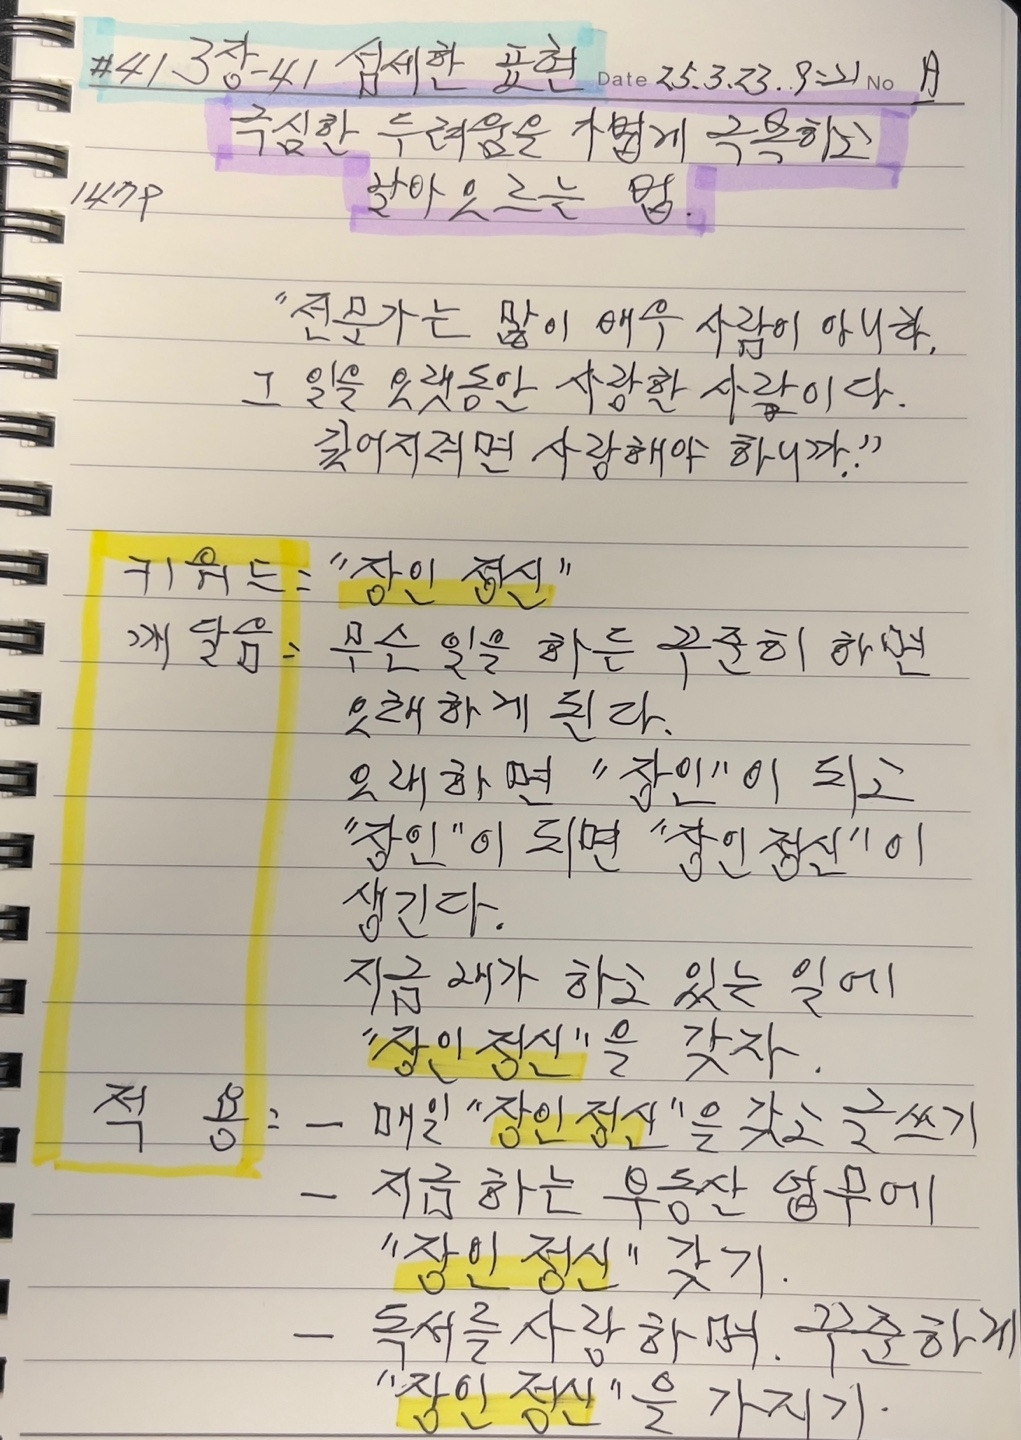 #41 3장-41 섬세한 표현 Date 25.3.23. No A
극심한 두려움을 가볍게 극복하고
날아오르는 법.
147P
"전문가는 많이 배우 사람이 아니라.
그 일을 오랫동안 사랑한 사람이다.
깊어지려면 사랑해야 하니까."
키워드: "장인 정신"
깨달음: 무슨 일을 하든 꾸준히 하면
오래하게 된다.
오래하면 "장인"이 되고
"장인"이 되면 "장인정신"이
생긴다.
지금 내가 하고 있는 일에
"장인정신"을 갖자.
적 용: - 매일 "장인정신"을 갖고 글쓰기
- 지금 하는 부동산 업무에
"장인 정신" 갖기.
- 독서를 사랑하며. 꾸준하게
"장인 정신"을 가지기.